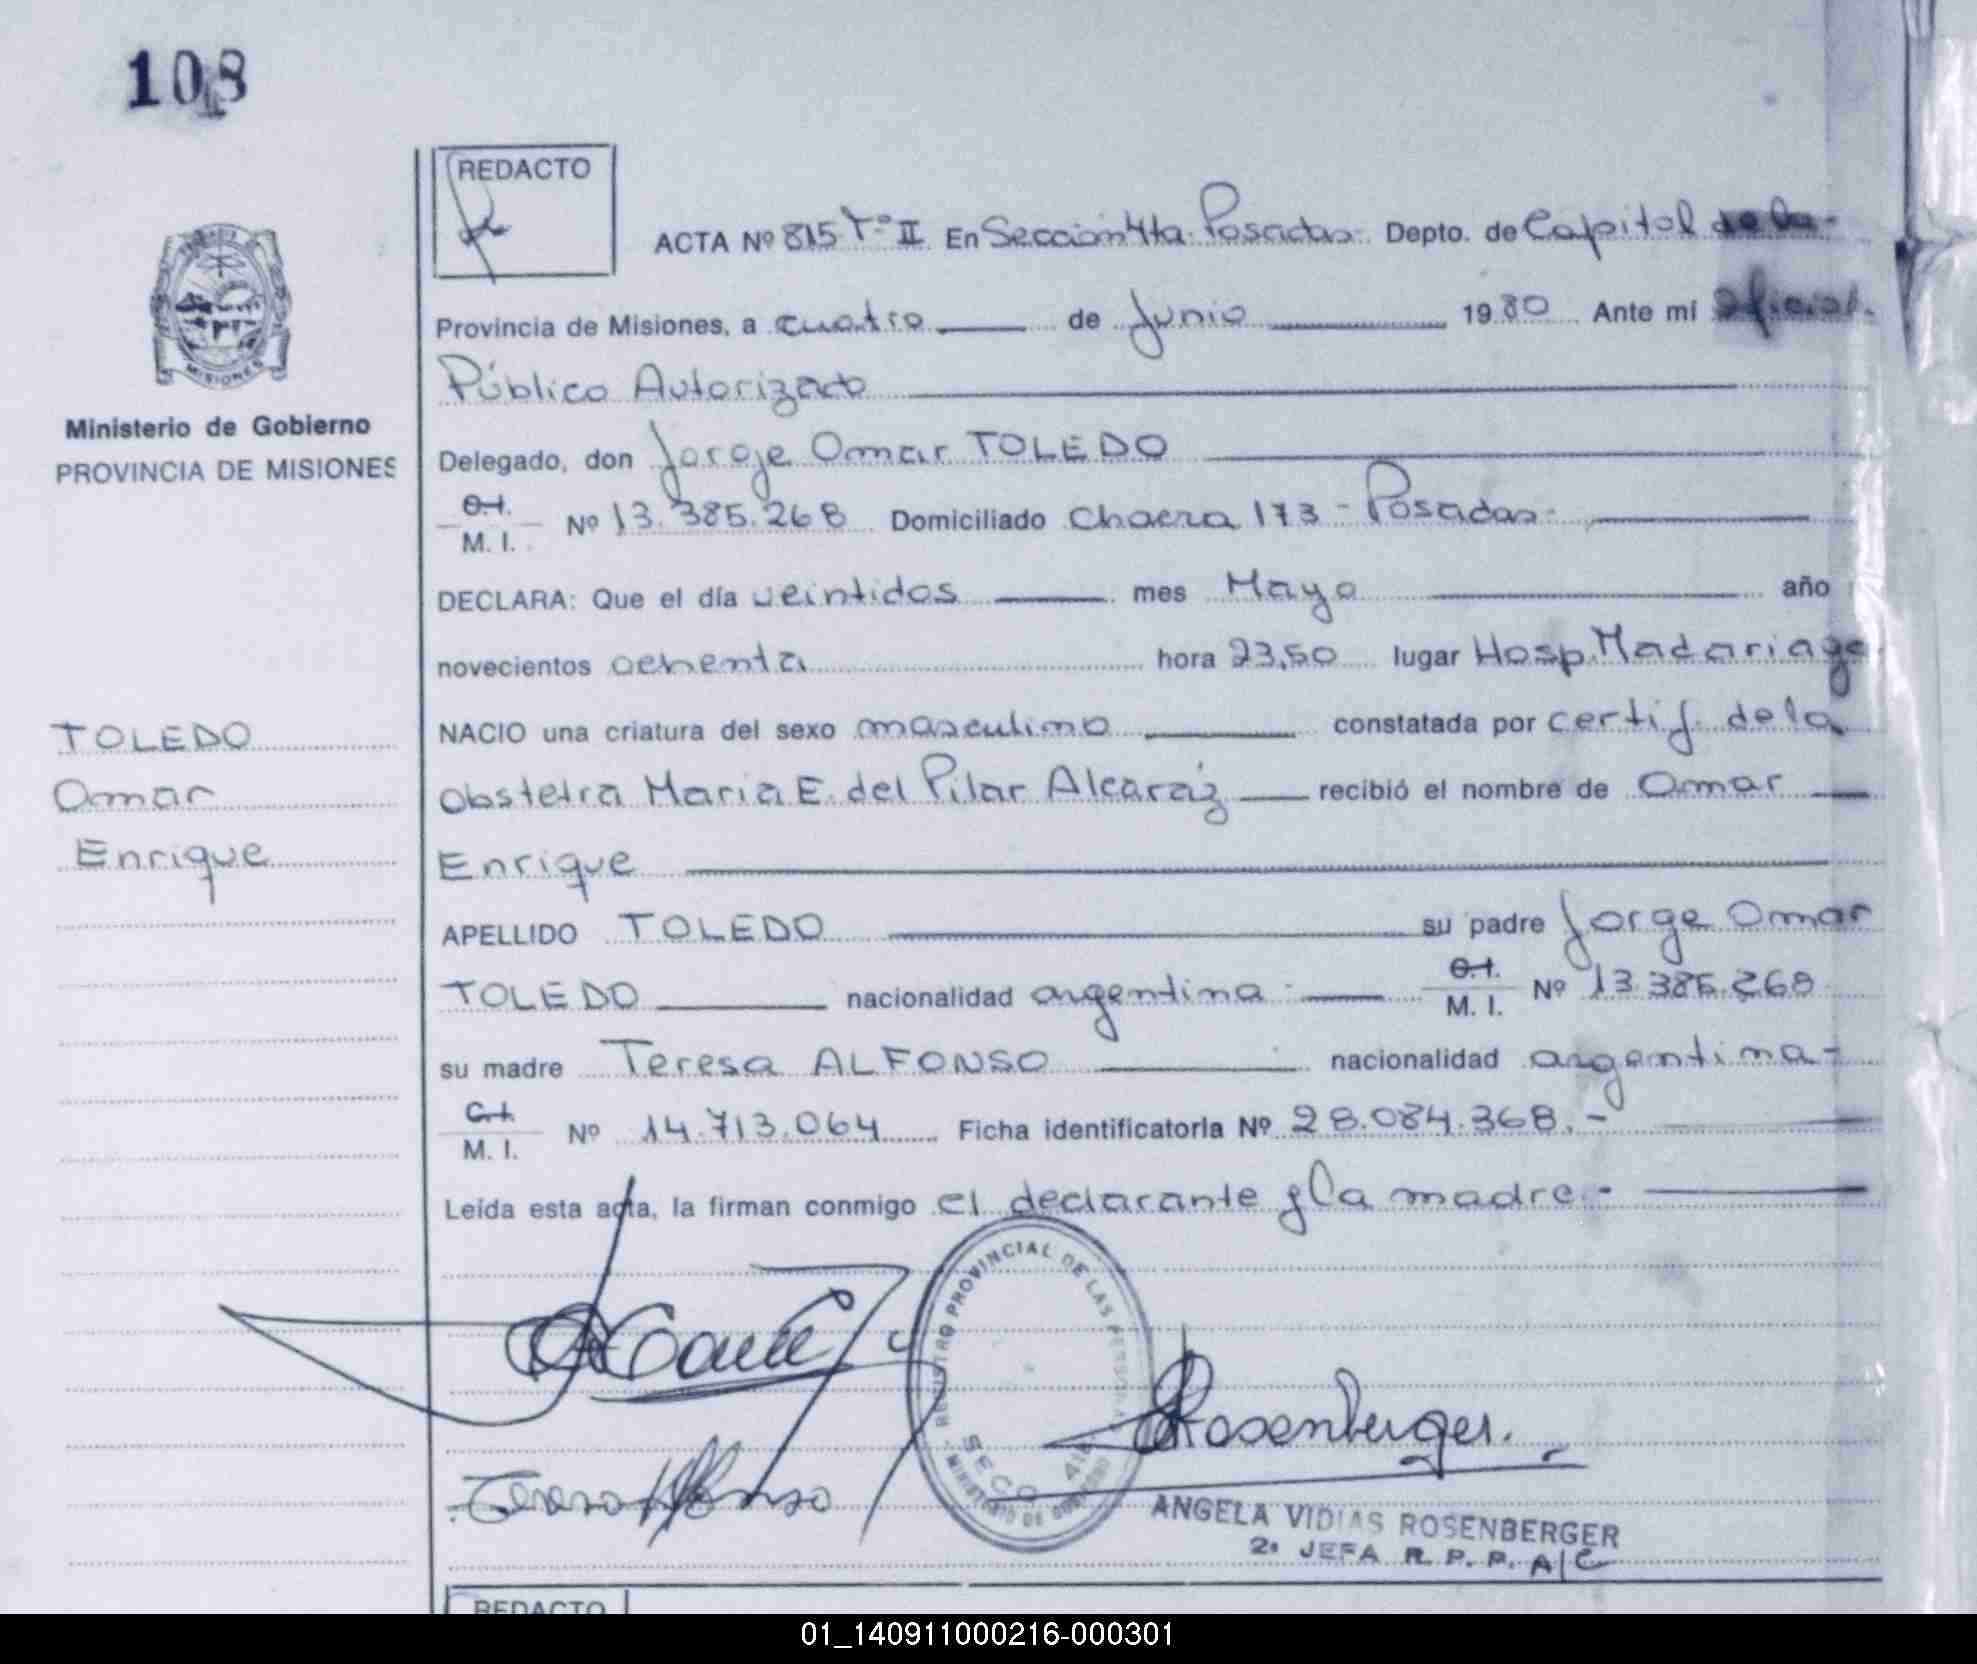 108
REDACTO
ACTA Nº 815 Tº II En Sección 4ta. Posadas Depto. de Capital de la
Provincia de Misiones, a cuatro de Junio 1980 Ante mí Oficial
Público Autorizado
Ministerio de Gobierno
PROVINCIA DE MISIONES
MISIONES
Delegado, don Jorge Omar TOLEDO
C.I.
M. I. Nº 13.385.268 Domiciliado Chacra 173 - Posadas
DECLARA: Que el día veintidos mes Mayo año
novecientos ochenta hora 23,50 lugar Hosp. Madariaga
TOLEDO
Omar
Enrique
NACIO una criatura del sexo masculino constatada por certif. de la
obstetra Maria E. del Pilar Alcaráz recibió el nombre de Omar
Enrique
APELLIDO TOLEDO su padre Jorge Omar
TOLEDO nacionalidad argentina C.I.
M. I. Nº 13.385.268
su madre Teresa ALFONSO nacionalidad argentina -
C.I.
M. I. Nº 14.713.064 Ficha identificatoria Nº 28.084.368.-
Leída esta acta, la firman conmigo el declarante y la madre.-
REGISTRO PROVINCIAL DE LAS PERSONAS
SECC 4ta
MINISTERIO DE GOBIERNO
Rosenberger.
Teresa Alfonso
ANGELA VIDIAS ROSENBERGER
2º JEFA R. P. P. A/C
REDACTO
01_140911000216-000301